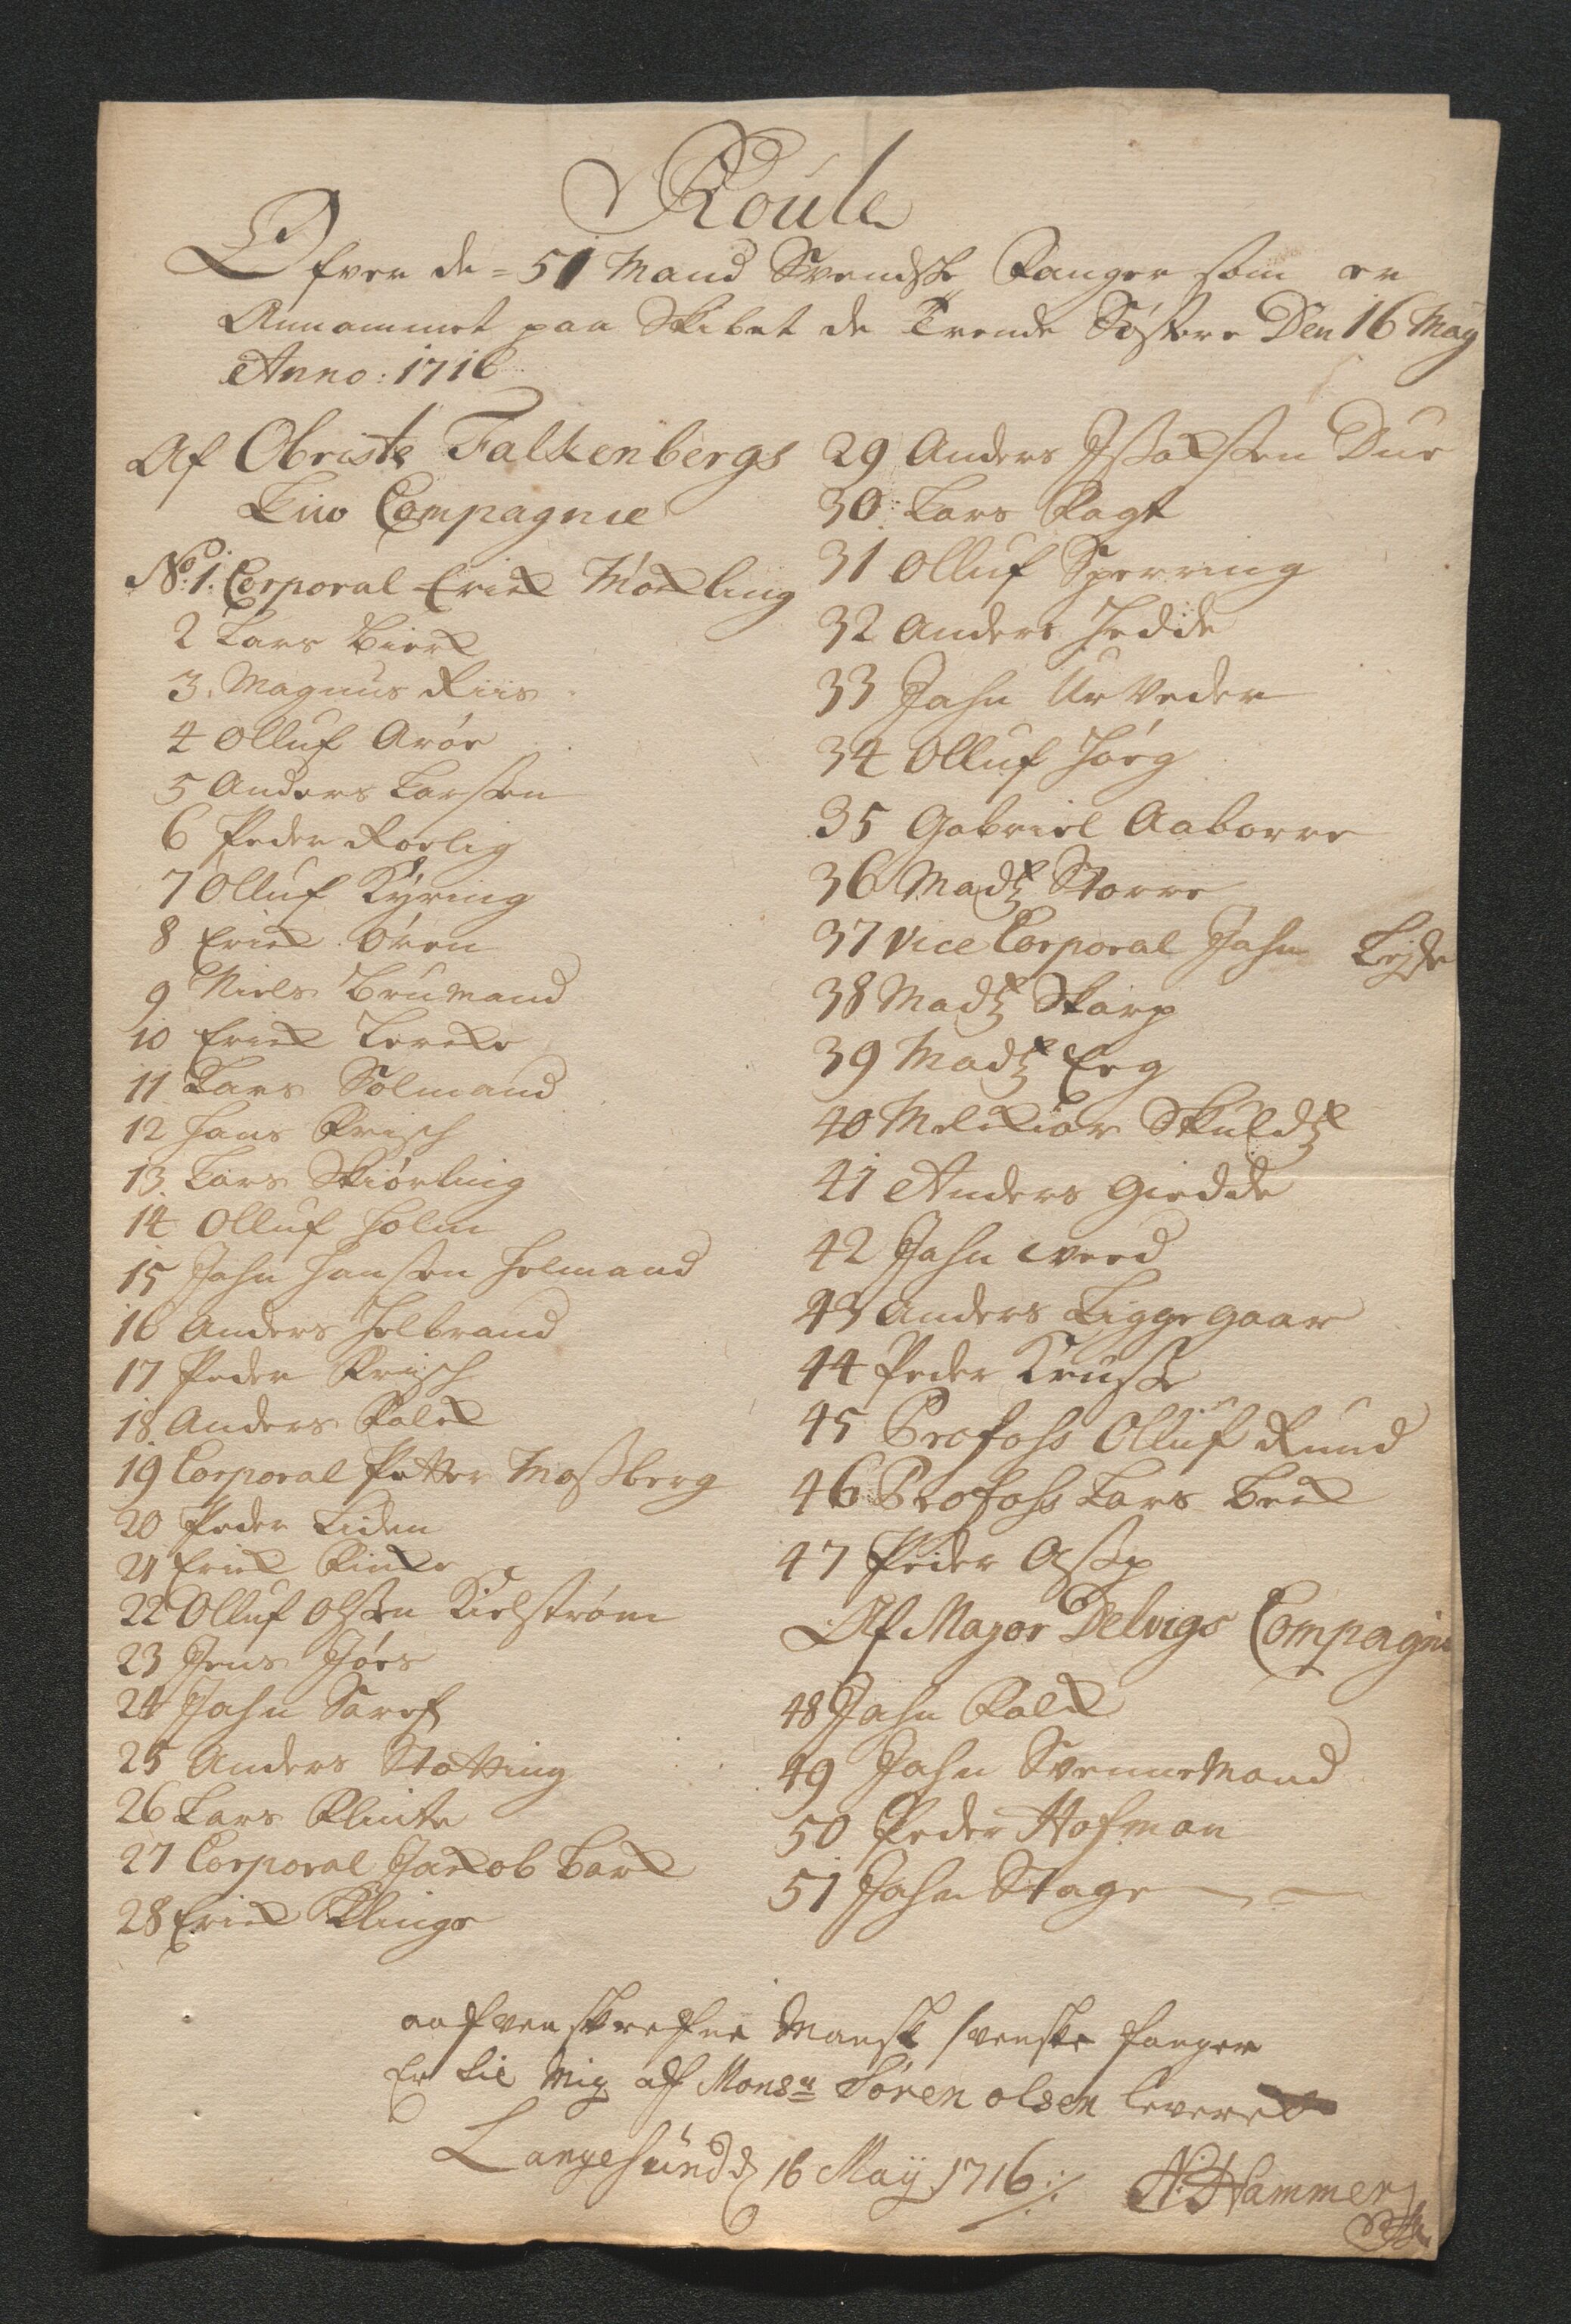 Roule
Ofver de = 51 Mand Svendske Fanger som er
Annammet paa Skibet de Trende Søstere Den 16 May
Anno: 1716
Af Obriste Falkenbergs
Liw Compagnie
No: 1. Corporal Erich Mochling
2 Lars Bierch
3. Magnus Riis
4 Olluf Arör
5 Anders Larssen
6 Peder Roelig
7 Olluf Kÿring
8 Erich Ören
9 Niels Brumand
10 Erich Lerche
11 Lars Solmand
12 Hans Frisch
13 Lars Skiörling
14 Olluf Holm
15 Jahn Hanssen Holmand
16 Anders Holbrand
17 Peder Frisch
18 Anders Falch
19 Corporal Petter Mossberg
20 Peder Liden
21 Erich Finche
22 Olluf Olssen Kielström
23 Jens Jöes
24 Jahn Taref
25 Anders Stotting
26 Lars Flinte
27 Corporal Jacob Barch
28 Erich Klinge
29 Anders Issachsen Dur
30 Lars Fagt
31 Olluf Sperring
32 Anders Hedde
33 Jahn Ur Veder
34 Olluf Hörg
35 Gabriel Aaborre
36 Madtz Storre
37 Vice Corporal Jahn Lÿde
38 Madtz Skarp
39 Madtz Eeg
40 Melchior Skuldtz
41 Anders Giedde
42 Jahn Weed
43 Anders Liggegaar
44 Peder Krusse
45 Profoss Olluf Rund
46 Profoss Lars Bech
47 Peder Assp
Af Mayor Delvigs Compagni
48 Jahn Falch
49 Jahn Svennemand
50 Peder Hofman
51 Jahn Stage
oafvenskrefne Mansk svenske fanger
Er til Mig af Monsr Sören olsen leveret
Langesund d 16 Maÿ 1716
N: Hammer